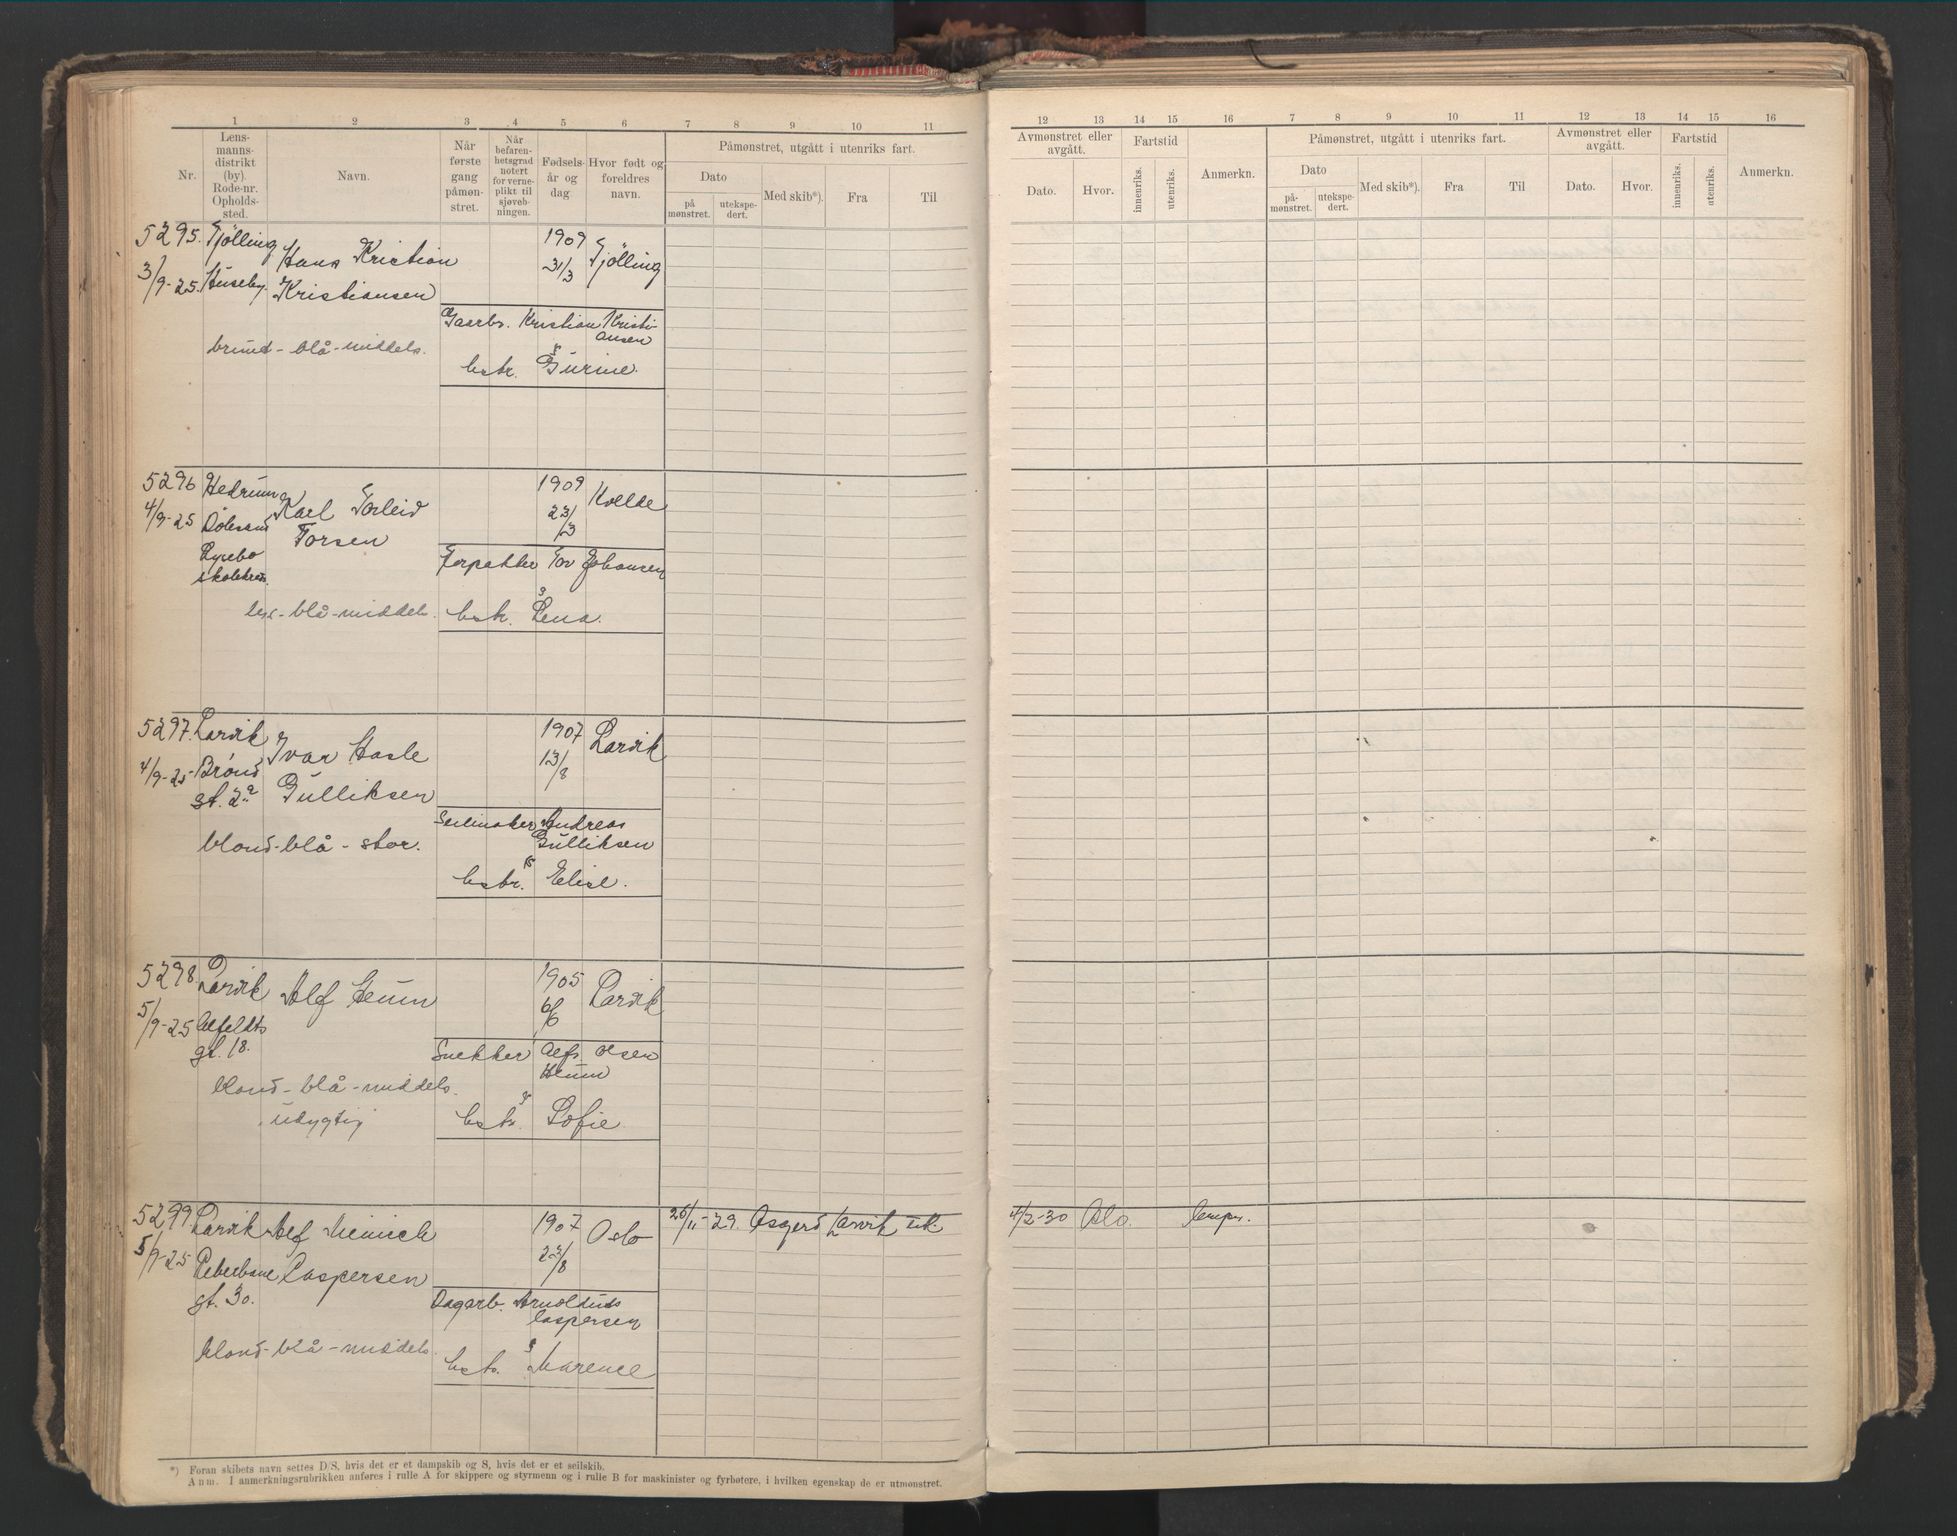 1 2 3 4 5 6 7 8 9 10 11
Nr.
Lens-
manns-
distrikt
(by).
Rode-nr.
Opholds-
sted.
Navn.
Når
første
gang
påmøn-
stret.
Når
befaren-
hetsgrad
notert
for verne-
plikt til
sjøveb-
ningen.
Fødsels-
år og
dag
Hvor født og
foreldres
navn.
Påmønstret, utgått i utenriks fart.
Dato
på
mønstret.
utekspe-
dert.
Med skib*).
Fra
Til
12 13 14 15 16 7 8 9 10 11 12 13 14 15 16
Avmønstret eller
avgått.
Dato.
Hvor.
Fartstid
innenriks.
utenriks.
Anmerkn.
Påmønstret, utgått i utenriks fart.
Dato
på-
mønstret.
utekspe-
dert.
Med skib*).
Fra
Til
Avmønstret eller
avgått.
Dato.
Hvor.
Fartstid
innenriks.
utenriks.
Anmerkn.
5295. Tjølling Hans Kristian 1909 Tjølling
3/9-25. Huseby. Kristiansen 31/3
Gaarbr. Kristian Kristi-
ansen
brund-blå-middels.
hstr. Gurine.
5296 Hedrum Karl Torleid 1909 Kvelde
4/9-25 Torsen 23/3
skolekrets.
Tor Johansen
blå-middels.
hstr. Lena.
5297. Larvik Ivar Hasle 1907 Larvik
4/9-25 Brønd Gulliksen 13/8
gt. 2a
Seilmaker Andreas
Gulliksen
blond-blå-stor.
hstr. Elise.
5298. Larvik Alf Heum 1905 Larvik
5/9-25 Ahlfeldts 6/6
gt. 18.
Snekker Alfs Olsen
Heum
blond-blå-middels.
udygtig
hstr. Sofie
5299. Larvik Alf Meinich 1907 Oslo 26/11-29. Asgerd Larvik utr. 4/2-30 Oslo.
5/9-25 Caspersen 23/8
gt. 30.
Dagarb. Arnoldus
Caspersen
blond-blå-middels.
hstr. Marence
*) Foran skibets navn settes D/S, hvis det er et dampskib og S, hvis det er et seilskib.
Anm. I anmerkningsrubrikken anføres i rulle A for skippere og styrmenn og i rulle B for maskinister og fyrbøtere, i hvilken egenskap de er utmonstret.